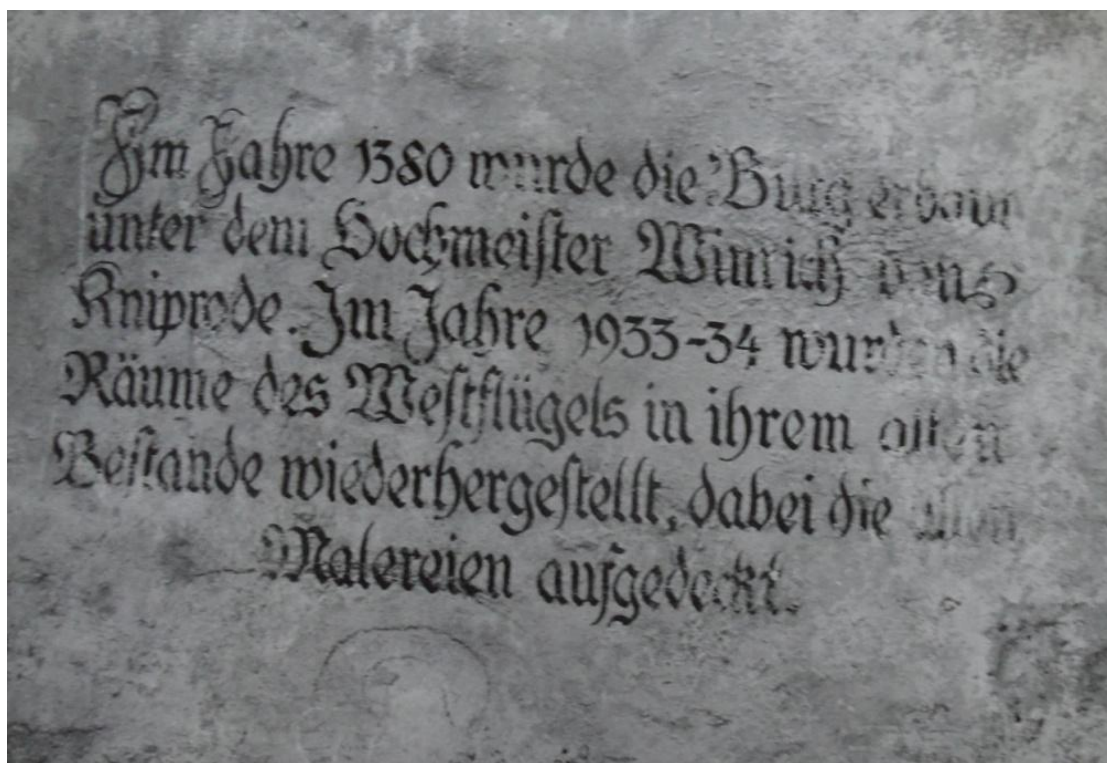 Im Jahre 1380 wurde die Burg erbaut
unter dem Hochmeister Winrich von
Kniprode. Im Jahre 1933-34 wurden die
Räume des Westflügels in ihrem alten
Bestande wiederhergestellt, dabei die alten
Malereien aufgedeckt.